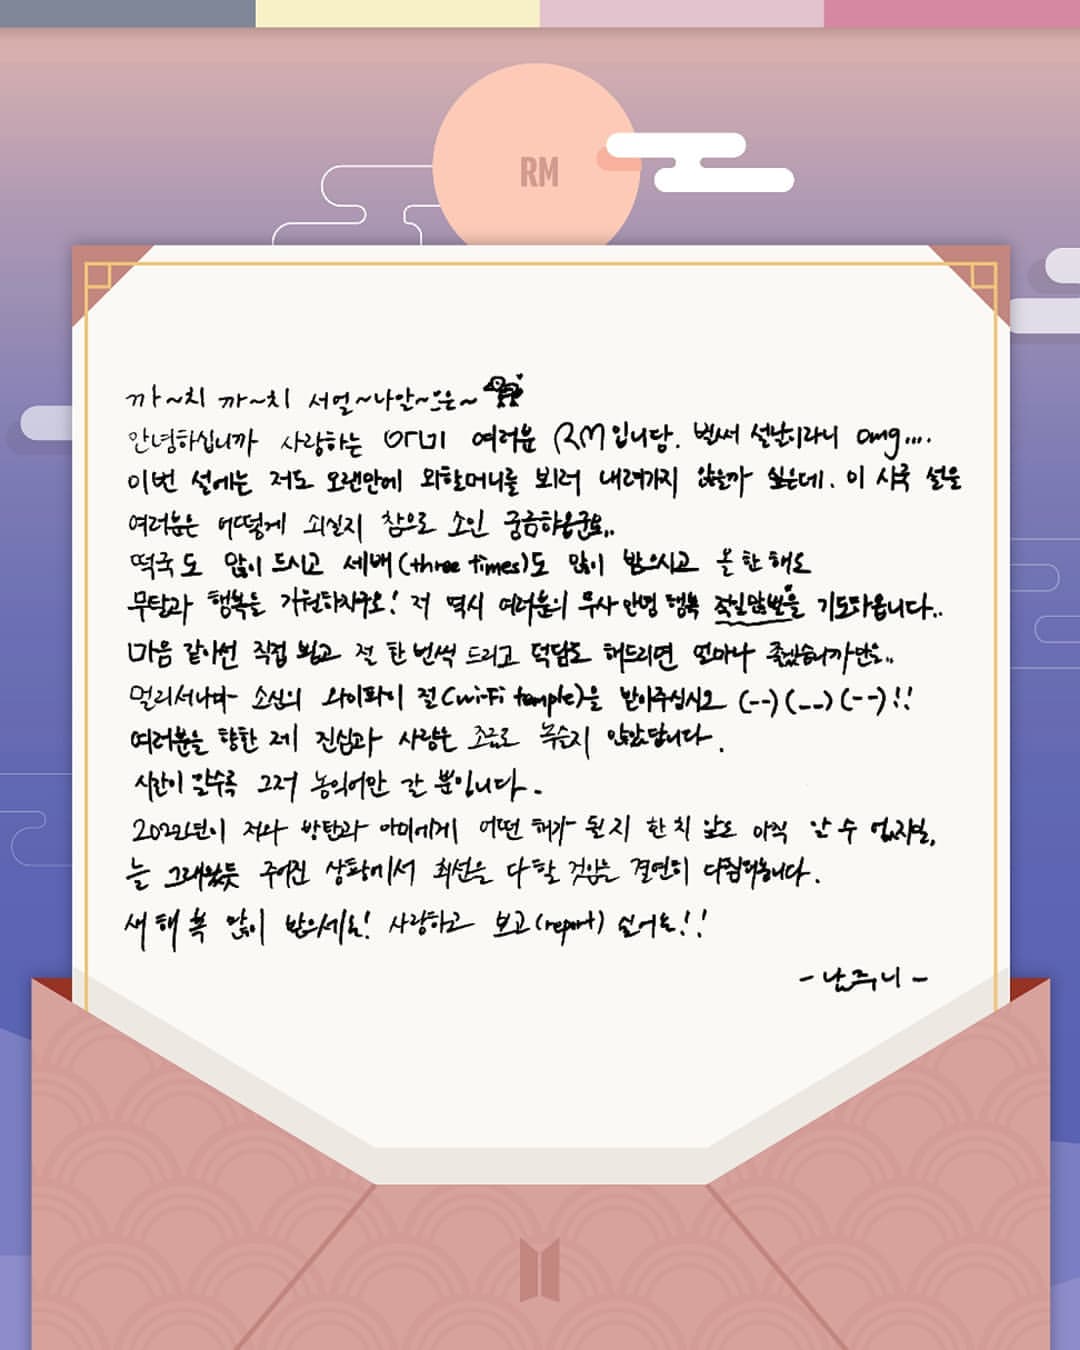 RM
까~치 까~치 서얼~나알~으은~
안녕하십니까 사랑하는 아미 여러분 RM입니당. 벌써 설날이라니 omg....
이번 설에는 저도 오랜만에 외할머니를 뵈러 내려가지 않을까 싶은데. 이 설을
여러분은 어떻게 쇠실지 참으로 소인 궁금하옵군요..
떡국도 많이 드시고 세배(three times)도 많이 받으시고 올 한 해도
무탈과 행복을 기원하자구요! 저 역시 여러분의 무사 안녕 행복 을 기도하옵니다..
마음 같아선 직접 뵙고 절 한 번씩 드리고 덕담도 해드리면 얼마나 좋겠습니까만은..
멀리서나마 소신의 와이파이 절(wi-fi temple)을 받아주십시오 (--)(__)(--)!!
여러분을 향한 제 진심과 사랑은 조금도 녹슬지 않았답니다.
시간이 갈수록 그저 농익어만 갈 뿐입니다.
2022년이 저와 방탄과 아미에게 어떤 해가 될지 한 치 앞도 아직 알 수 없지만,
늘 그래왔듯 주어진 상황에서 최선을 다할 것임을 결연히 다짐해봅니다.
새해 복 많이 받으세요! 사랑하고 보고(report) 싶어요!!
- 남주니 -